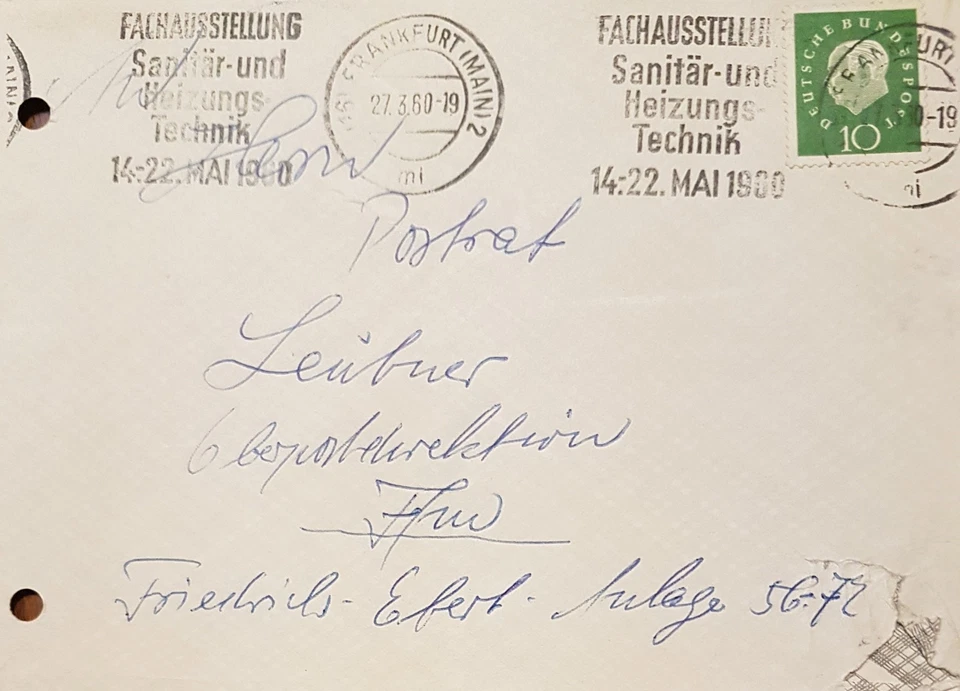 FACHAUSSTELLUNG
Sanitär-und
Heizungs-
Technik
14.-22. MAI 1960
(16) FRANKFURT (MAIN) 2
27.3.60-19
mi
FACHAUSSTELLUNG
Sanitär-und
Heizungs-
Technik
14.-22. MAI 1960
DEUTSCHE BUNDESPOST
10
Herrn
Postrat
Leubner
Oberpostdirektion
Ffm
Friedrich-Ebert-Anlage 56-72